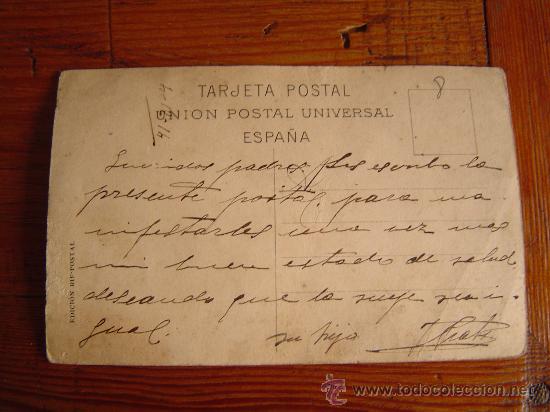 8
TARJETA POSTAL
UNION POSTAL UNIVERSAL
ESPAÑA
padres Les escribo la
presente postal para ma
nifestarles una vez mas
mi buen estado de salud
deseando que la suya sea i
gual.
su hijo
EDICIÓN HIS-POSTAL
todocoleccion
www.todocoleccion.net